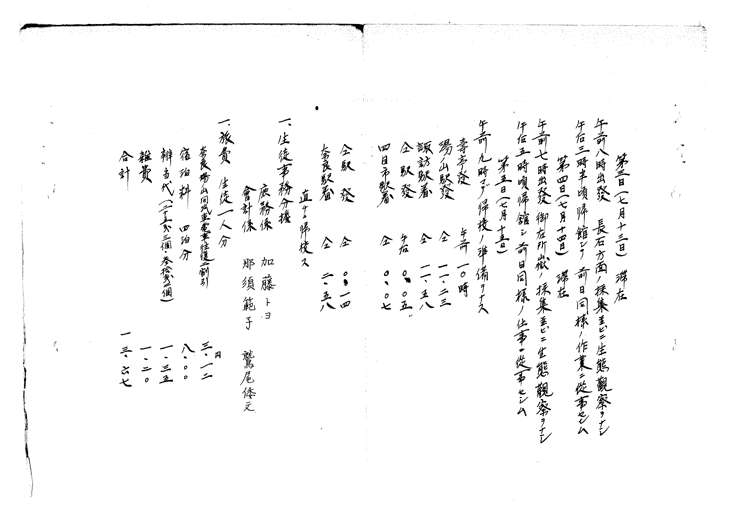 第三日(七月十三日) 滞在
午前八時出発 長石方面ノ採集並ビニ生態観察ヲナシ
午后三時半頃帰館シテ前日同様ノ作業ニ従事セシム
第四日(七月十四日) 滞在
午前七時出發御在所嶽ノ採集並ビニ生態観察ヲナシ
午后五時頃帰館シ前日同様ノ仕事ニ從事セシム
第五日(七月十五日)
午前九時マデ帰校ノ準備ヲナス
寺市發 午前 一〇時
湯ノ山駅發 仝 一一・二三
諏訪駅着 仝 一一・五八
仝駅發 午后 〇・〇五
四日市駅着 仝 〇・〇七
仝駅發 仝 〇・一四
奈良駅着 仝 二・五八
直チニ帰校ス
一、生徒事務分擔
庶務係 加藤トヨ
會計係 那須範子 鷲尾
一、旅費 生徒一人分
奈良湯ノ山間汽車電車往復二割引 三・一二円
宿泊料 四泊分 八・〇〇
辨当代(二十五銭三個・参拾銭二個) 一・三五
雑費 一・二〇
合計 一三・六七